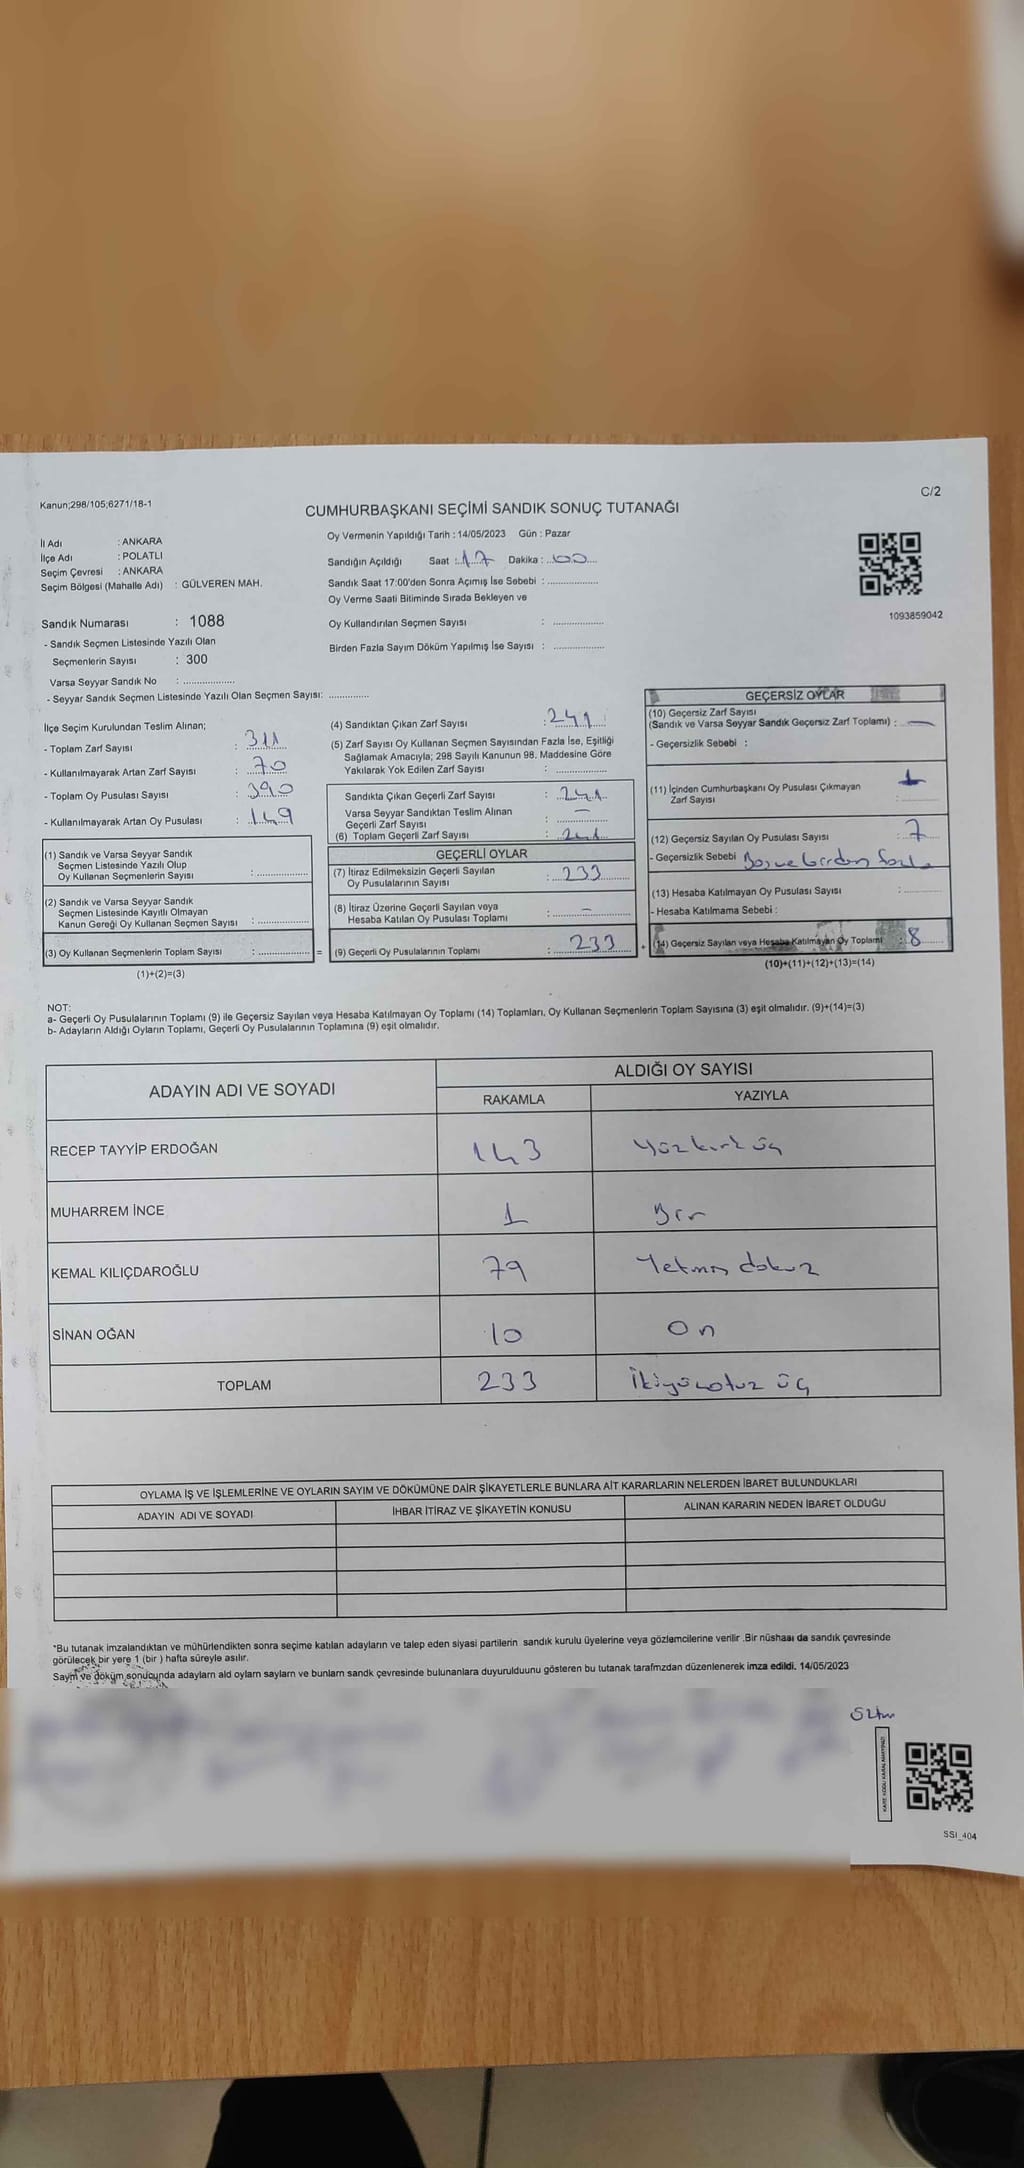 Kanun;298/105;6271/18-1
C/2
CUMHURBAŞKANI SEÇİMİ SANDIK SONUÇ TUTANAĞI
İl Adı : ANKARA
İlçe Adı : POLATLI
Seçim Çevresi : ANKARA
Seçim Bölgesi (Mahalle Adı) : GÜLVEREN MAH.
Sandık Numarası : 1088
- Sandık Seçmen Listesinde Yazılı Olan
Seçmenlerin Sayısı : 300
Varsa Seyyar Sandık No : ..................
- Seyyar Sandık Seçmen Listesinde Yazılı Olan Seçmen Sayısı: ..............
Oy Vermenin Yapıldığı Tarih : 14/05/2023 Gün : Pazar
Sandığın Açıldığı Saat : 17 Dakika : 00
Sandık Saat 17:00'den Sonra Açımış İse Sebebi : ..................
Oy Verme Saati Bitiminde Sırada Bekleyen ve
Oy Kullandırılan Seçmen Sayısı : ..................
Birden Fazla Sayım Döküm Yapılmış İse Sayısı : ..................
1093859042
İlçe Seçim Kurulundan Teslim Alınan;
- Toplam Zarf Sayısı : 311
- Kullanılmayarak Artan Zarf Sayısı : 70
- Toplam Oy Pusulası Sayısı : 390
- Kullanılmayarak Artan Oy Pusulası : 149
(1) Sandık ve Varsa Seyyar Sandık
Seçmen Listesinde Yazılı Olup
Oy Kullanan Seçmenlerin Sayısı : ..................
(2) Sandık ve Varsa Seyyar Sandık
Seçmen Listesinde Kayıtlı Olmayan
Kanun Gereği Oy Kullanan Seçmen Sayısı : ..................
(3) Oy Kullanan Seçmenlerin Toplam Sayısı : .................. =
(1)+(2)=(3)
(4) Sandıktan Çıkan Zarf Sayısı : 241
(5) Zarf Sayısı Oy Kullanan Seçmen Sayısından Fazla İse, Eşitliği
Sağlamak Amacıyla; 298 Sayılı Kanunun 98. Maddesine Göre
Yakılarak Yok Edilen Zarf Sayısı : ..................
Sandıkta Çıkan Geçerli Zarf Sayısı : 241
Varsa Seyyar Sandıktan Teslim Alınan
Geçerli Zarf Sayısı : —
(6) Toplam Geçerli Zarf Sayısı : 241
GEÇERLİ OYLAR
(7) İtiraz Edilmeksizin Geçerli Sayılan
Oy Pusulalarının Sayısı : 233
(8) İtiraz Üzerine Geçerli Sayılan veya
Hesaba Katılan Oy Pusulası Toplamı : —
(9) Geçerli Oy Pusulalarının Toplamı : 233 +
GEÇERSİZ OYLAR
(10) Geçersiz Zarf Sayısı
(Sandık ve Varsa Seyyar Sandık Geçersiz Zarf Toplamı) : —
- Geçersizlik Sebebi :
(11) İçinden Cumhurbaşkanı Oy Pusulası Çıkmayan
Zarf Sayısı : 1
(12) Geçersiz Sayılan Oy Pusulası Sayısı : 7
- Geçersizlik Sebebi Boş ve birden fazla
(13) Hesaba Katılmayan Oy Pusulası Sayısı : ..........
- Hesaba Katılmama Sebebi :
(14) Geçersiz Sayılan veya Hesaba Katılmayan Oy Toplamı : 8
(10)+(11)+(12)+(13)=(14)
NOT:
a- Geçerli Oy Pusulalarının Toplamı (9) ile Geçersiz Sayılan veya Hesaba Katılmayan Oy Toplamı (14) Toplamları, Oy Kullanan Seçmenlerin Toplam Sayısına (3) eşit olmalıdır. (9)+(14)=(3)
b- Adayların Aldığı Oyların Toplamı, Geçerli Oy Pusulalarının Toplamına (9) eşit olmalıdır.
ADAYIN ADI VE SOYADI ALDIĞI OY SAYISI
RAKAMLA YAZIYLA
RECEP TAYYİP ERDOĞAN 143 Yüzkırk üç
MUHARREM İNCE 1 Bir
KEMAL KILIÇDAROĞLU 79 Yetmiş dokuz
SİNAN OĞAN 10 On
TOPLAM 233 İkiyüzotuz üç
OYLAMA İŞ VE İŞLEMLERİNE VE OYLARIN SAYIM VE DÖKÜMÜNE DAİR ŞİKAYETLERLE BUNLARA AİT KARARLARIN NELERDEN İBARET BULUNDUKLARI
ADAYIN ADI VE SOYADI İHBAR İTİRAZ VE ŞİKAYETİN KONUSU ALINAN KARARIN NEDEN İBARET OLDUĞU
*Bu tutanak imzalandıktan ve mühürlendikten sonra seçime katılan adayların ve talep eden siyasi partilerin sandık kurulu üyelerine veya gözlemcilerine verilir .Bir nüshası da sandık çevresinde
görülecek bir yere 1 (bir ) hafta süreyle asılır.
Sayım ve döküm sonucunda adayların ald oyların sayların ve bunların sandk çevresinde bulunanlara duyurulduunu gösteren bu tutanak tarafmzdan düzenlenerek imza edildi. 14/05/2023
SSİ_404